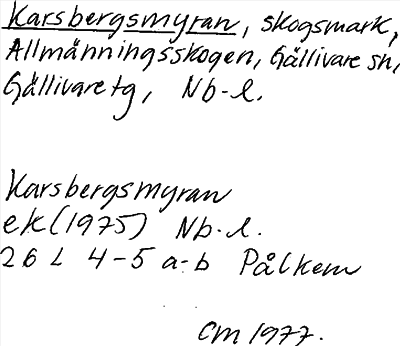 Karsbergsmyran, skogsmark,
Allmänningsskogen, Gällivare sn,
Gällivare tg, Nb-l.
Karsbergsmyran
ek (1975) Nb-l.
26 L 4-5 a-b Pålkem
CM 1977.